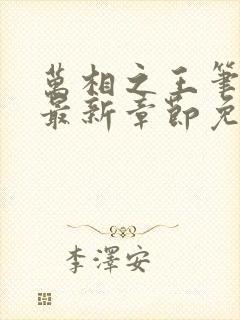 萬相之王筆
最新章節免
李澤安